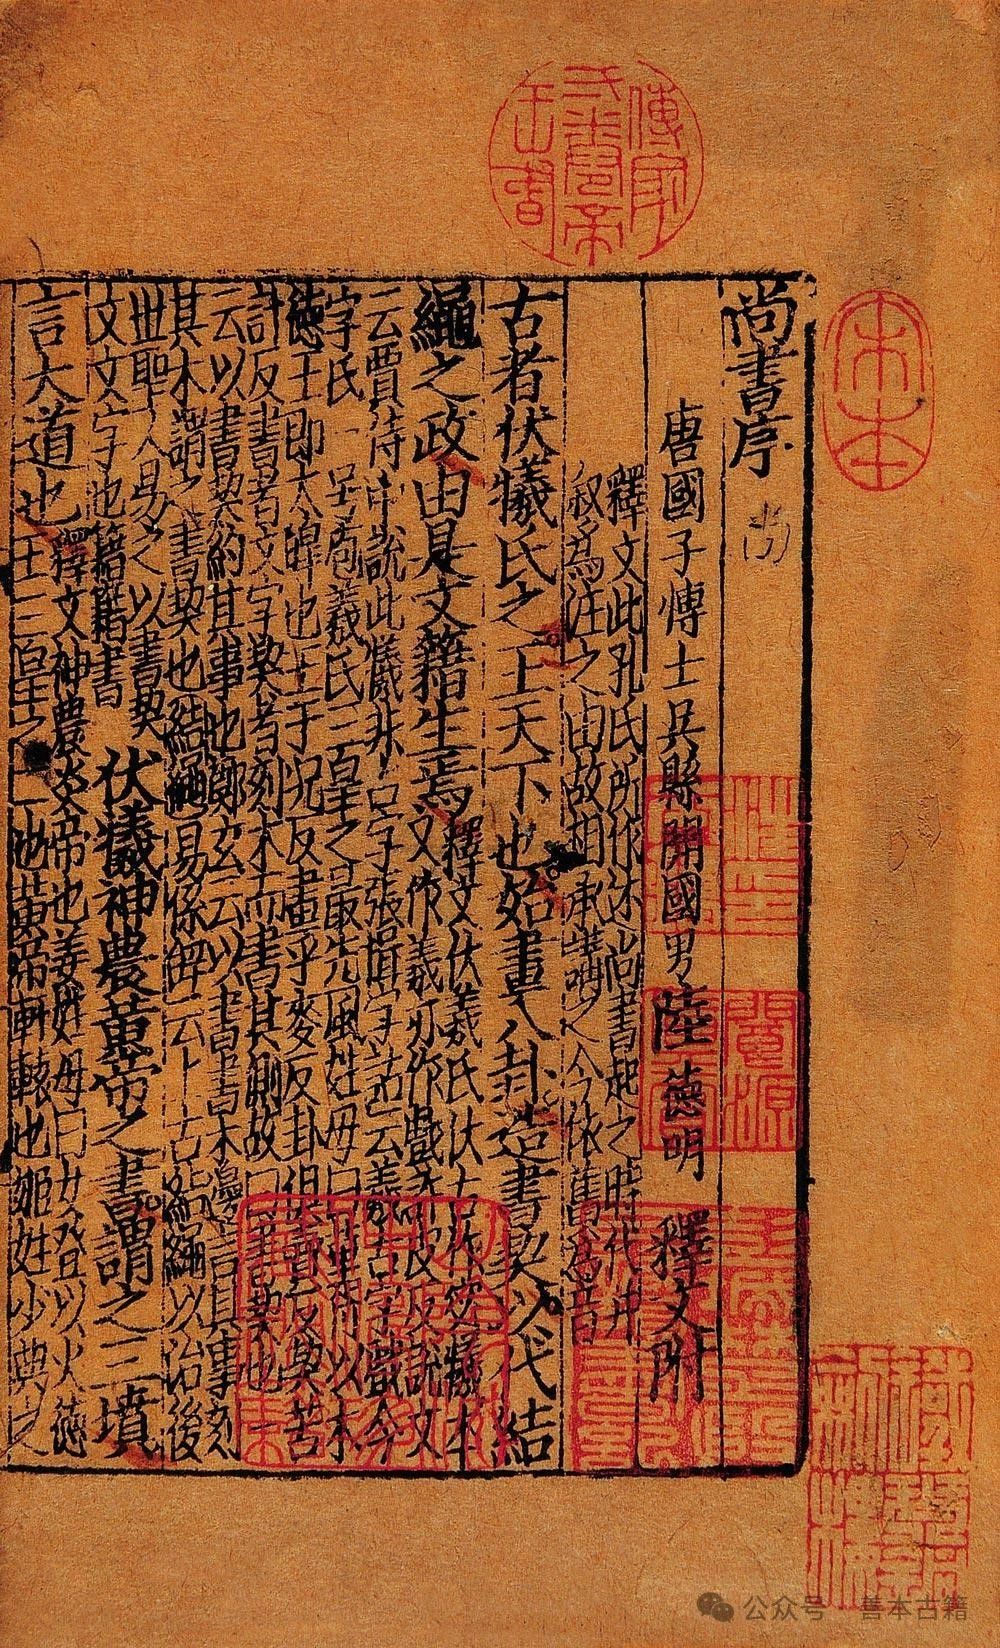 宋本
尚書序
唐國子博士吳縣開國男陸德明 釋文附
釋文此孔氏所作述尚書起之時代并
叙爲注之由故相承講之今依舊爲音
古者伏犧氏之王天下也始畫八卦造書契以代結
繩之政由是文籍生焉
釋文伏羲氏伏古作虙犧本
又作羲亦作戲許皮反說文
云賈侍中說此犧非古字張揖字詁云羲古字戲今
字氏一号包羲氏三皇之最先風姓母曰華胥以木
德王即太皞也王于況反畫乎麥反卦俱賣反契苦
計反書者文字契者刻木而書其側故曰書契也一
云以書契約其事也鄭玄云以書書木邊言其事刻
其木謂之書契也結繩易係辭云上古結繩以治後
世聖人易之以書契
文文字也籍籍書
伏犧神農黃帝之書謂之三墳
言大道也
釋文神農炎帝也姜姓母曰女登以火德
王三皇之二也黃帝軒轅也姬姓少典之
公众号 · 善本古籍